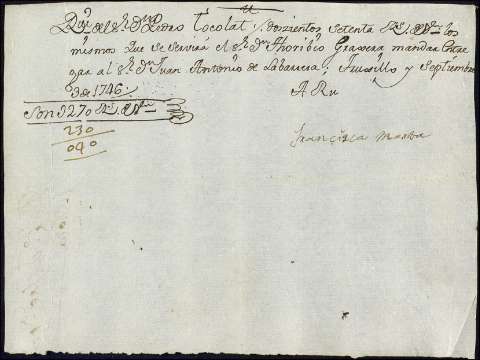 Rvi. del Sr. Dn. Pedro Tocolat y dozientos setenta Rs. de Vn. los
mismos que se servirá el Sr. Dn. Thoribio Gravera mandar entre
gar al Sr. Dn. Juan Antonio de Labarrera, Truxillo y Septiembre
3 de 1746.
A Ru
Son 9270 Rs. de Vn.
230
040
Francisca